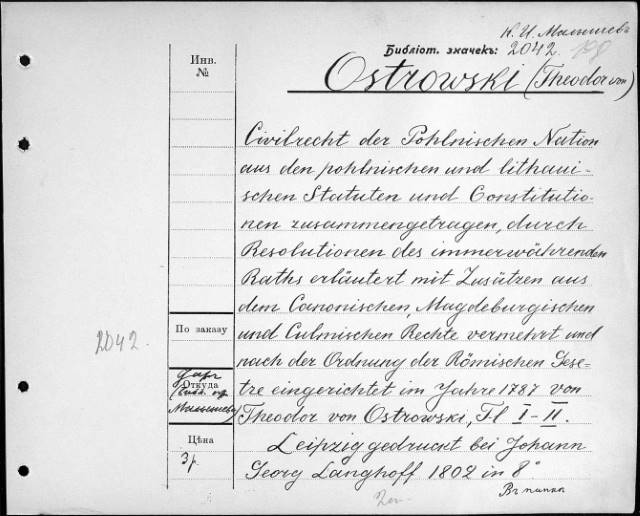 Н. И. Малышевъ
Библіот. значекъ: 2042.
Ostrowski (Theodor von)
Инв.
№
Civilrecht der Pohlnischen Nation
aus den pohlnischen und lithaui-
schen Statuten und Constitutio-
nen zusammengetragen, durch
Resolutionen des immerwährenden
Raths erläutert mit Zusützen aus
dem Canonischen, Magdeburgischen
und Culmischen Rechte vermehrt und
nach der Ordnung der Römischen Gese-
tze eingerichtet im Jahre 1787 von
Theodor von Ostrowski, Tl I-II.
Leipzig gedruckt bei Johann
Georg Langhoff 1802 in 8°
Въ папкѣ
2042.
По заказу
Откуда
Малышева)
Цѣна
3 р.